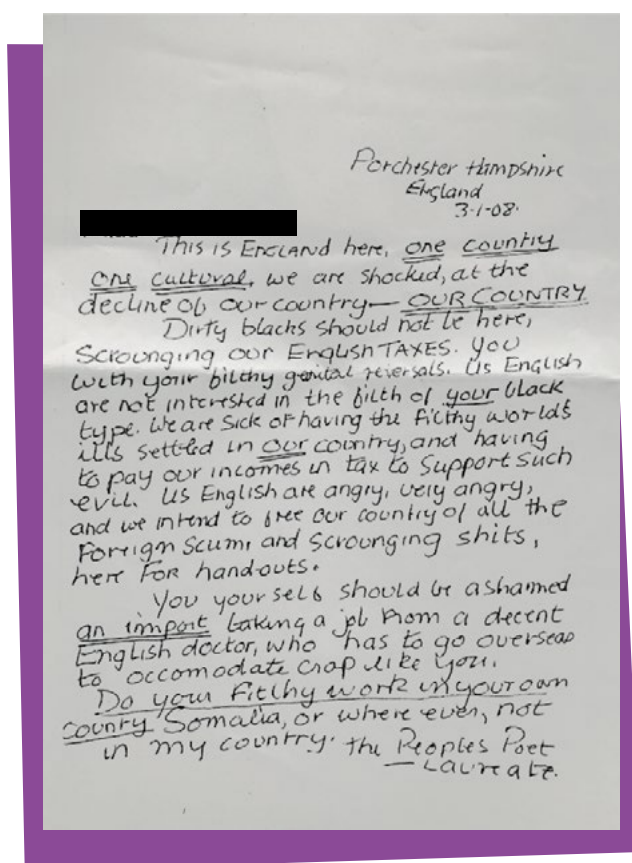 Porchester Hampshire
England
3-1-08.
This is ENGLAND here, one country
one cultural, we are shocked, at the
decline of our country — OUR COUNTRY
Dirty blacks should not be here,
Scrounging our English TAXES. You
with your filthy genital reversals. Us English
are not interested in the filth of your black
type. We are sick of having the filthy worlds
ills settled in our country, and having
to pay our incomes in tax to support such
evil. Us English are angry, very angry,
and we intend to free our country of all the
Foreign Scum, and scrounging shits,
here FOR handouts.
You yourself should be ashamed
an import taking a job from a decent
English doctor, who has to go overseas
to accomodate crap like you.
Do your Filthy work in your own
county Somalia, or where ever, not
in my country. the Peoples Poet
— Laureate.